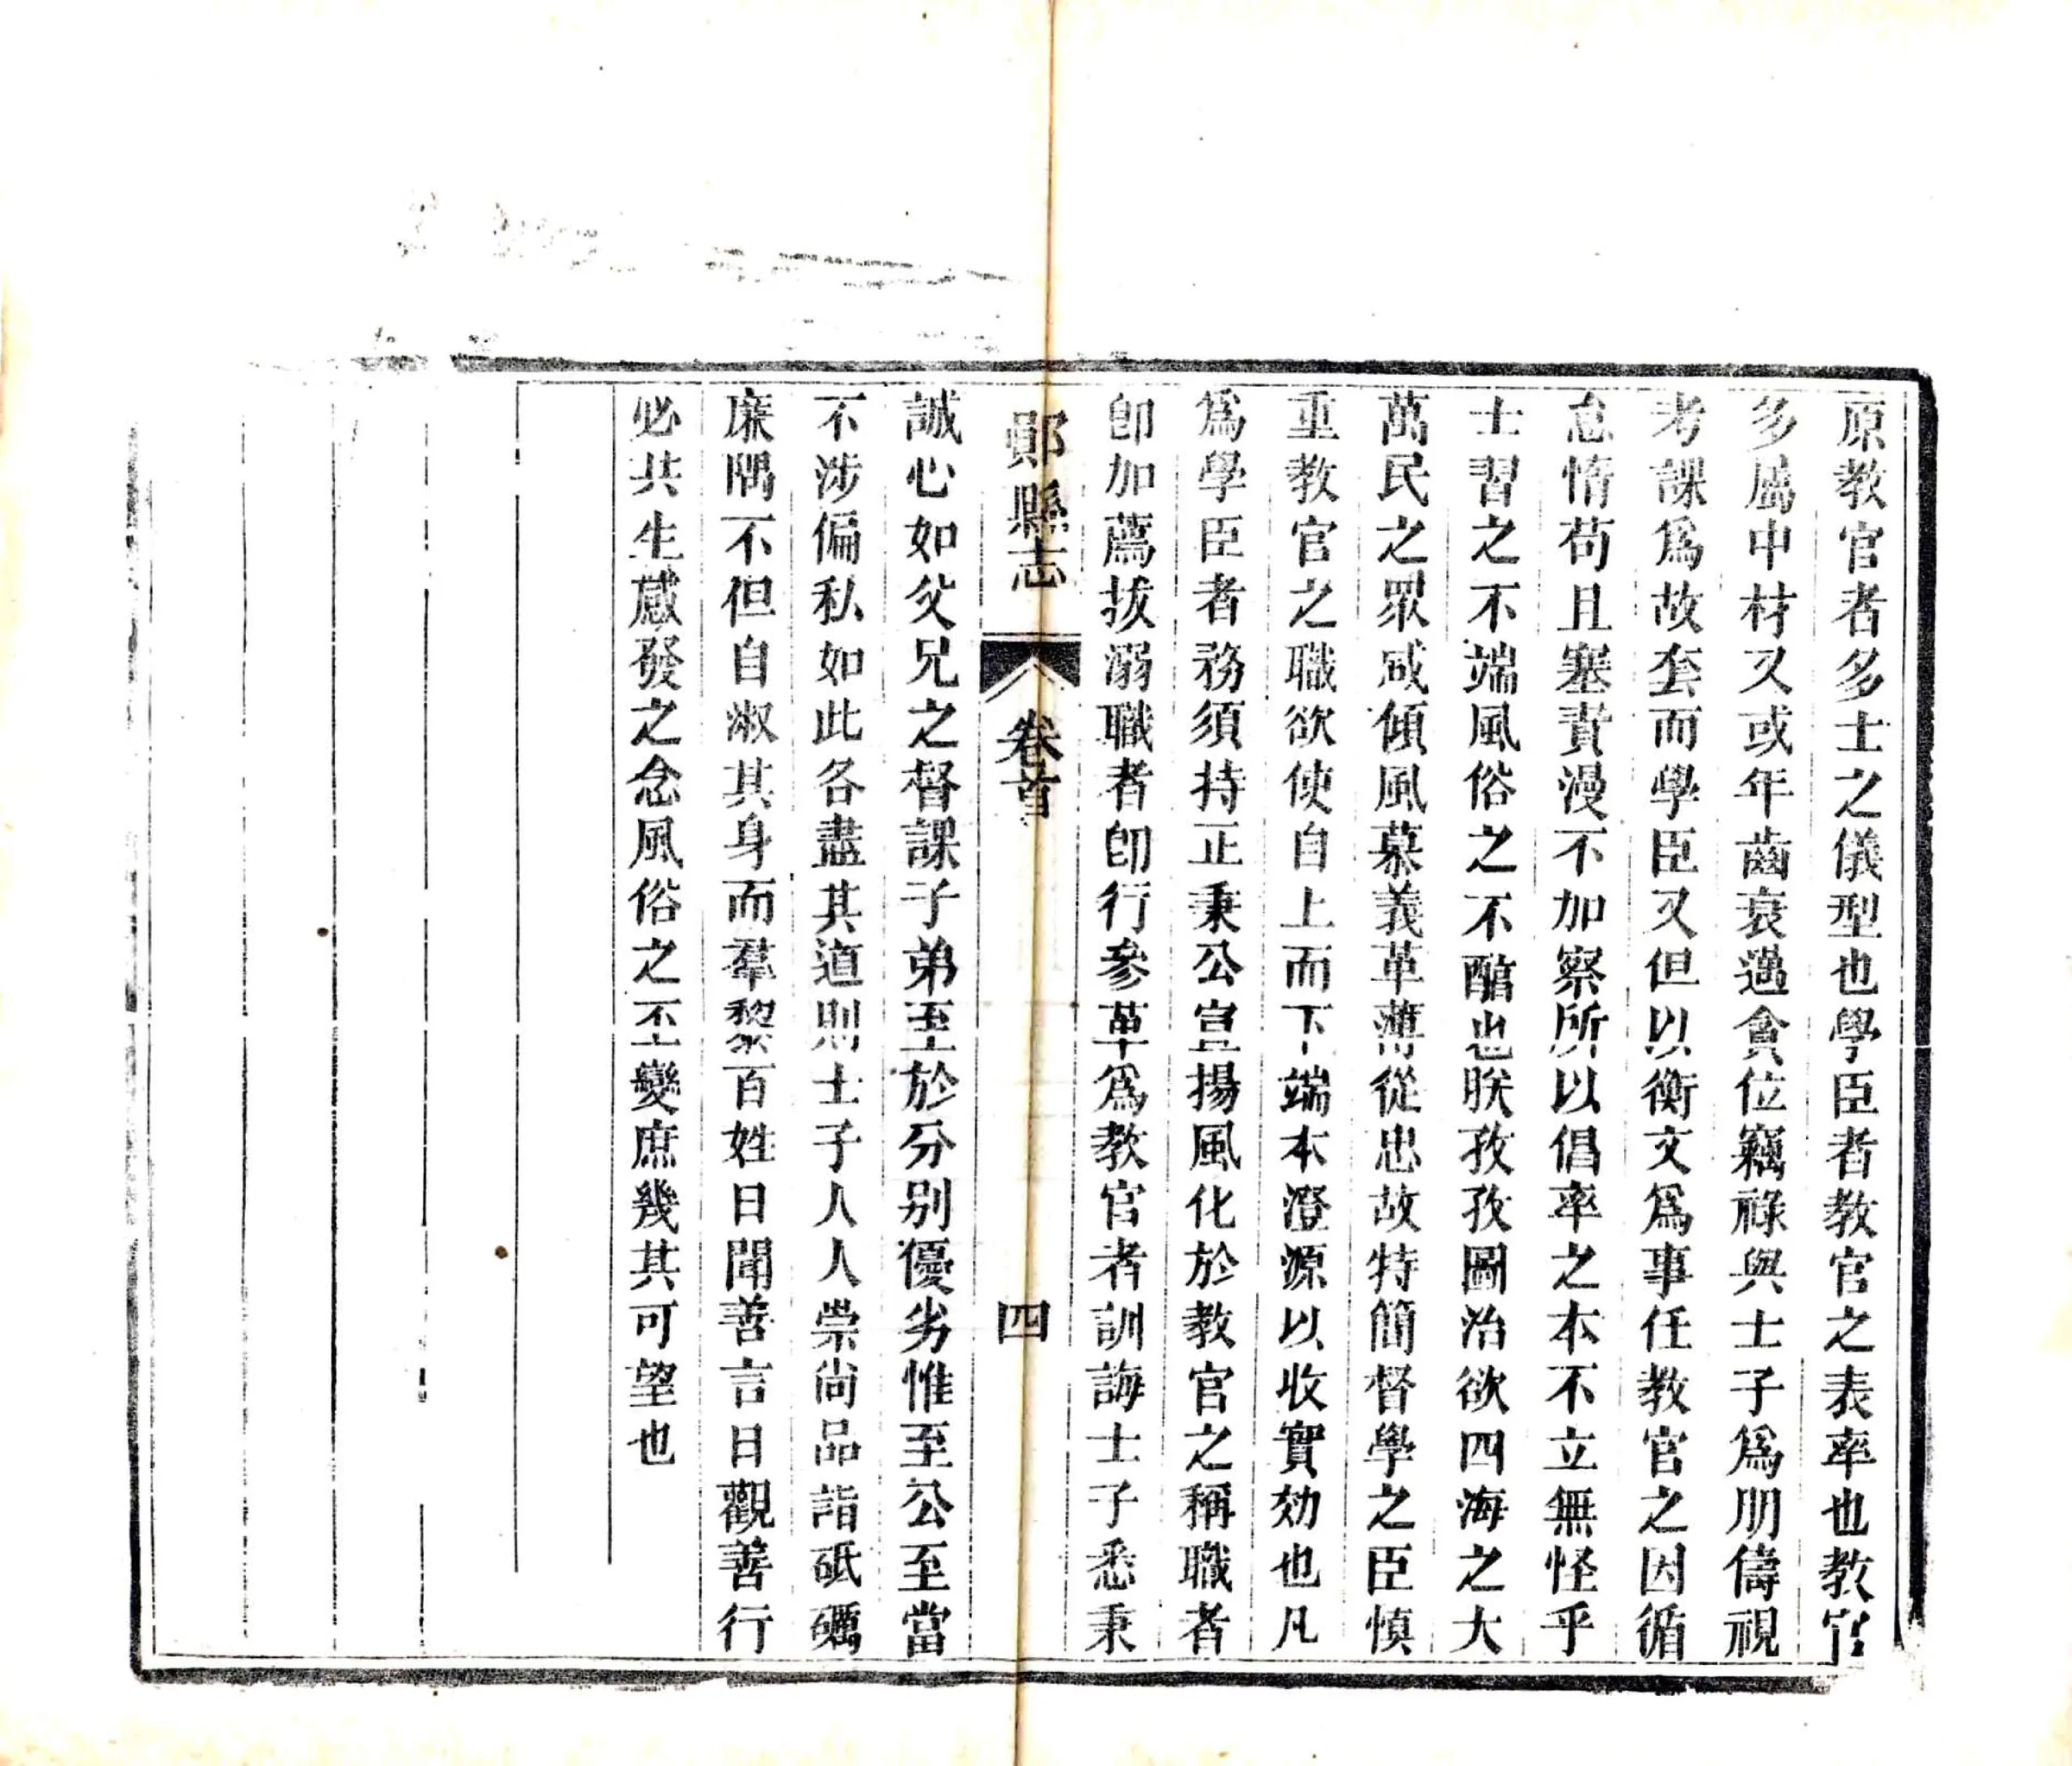 原教官者多士之儀型也學臣者教官之表率也教官
多屬中材又或年齒衰邁貪位竊祿與士子爲朋儔視
考課爲故套而學臣又但以衡文爲事任教官之因循
怠惰苟且塞責漫不加察所以倡率之本不立無怪乎
士習之不端風俗之不醕也朕孜孜圖治欲四海之大
萬民之眾咸傾風慕義革薄從忠故特簡督學之臣慎
重教官之職欲使自上而下端本澄源以收實効也凡
爲學臣者務須持正秉公宣揚風化於教官之稱職者
卽加薦拔溺職者卽行參革爲教官者訓誨士子悉秉
鄖縣志 卷首 四
誠心如父兄之督課子弟至於分别優劣惟至公至當
不涉偏私如此各盡其道則士子人人崇尚品詣砥礪
廉隅不但自淑其身而羣黎百姓日聞善言日觀善行
必共生感發之念風俗之丕變庶幾其可望也